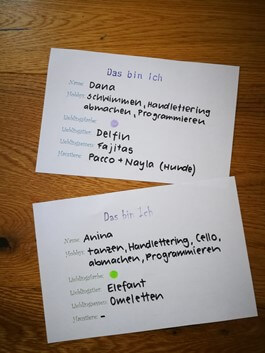 Das bin ich
Name: Dana
Hobbys: Schwimmen, Handlettering
abmachen, Programmieren
Lieblingsfarbe:
Lieblingstier: Delfin
Lieblingsessen: Fajitas
Haustiere: Pacco + Nayla (Hunde)
Das bin Ich
Name: Anina
Hobbys: tanzen, Handlettering, Cello,
abmachen, Programmieren
Lieblingsfarbe:
Lieblingstier: Elefant
Lieblingsessen: Omeletten
Haustiere: -